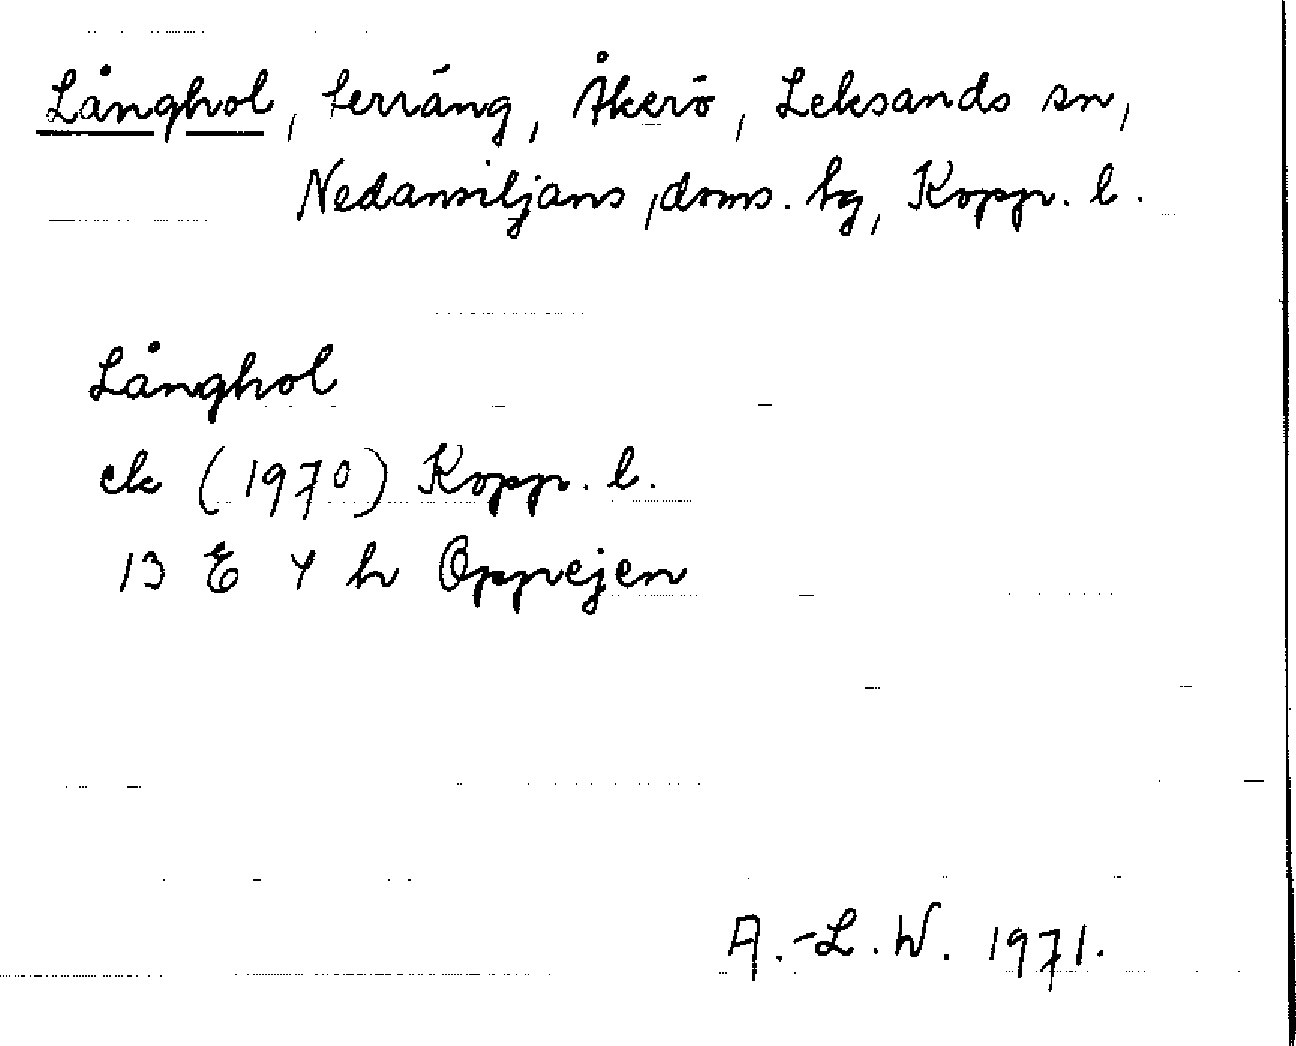 Långhol, terräng, Åkerö, Leksands sn,
Nedansiljans doms. tg, Kopp. l.
Långhol
ek (1970) Kopp. l.
13 E 4 h Oppejen
A.-L. W. 1971.